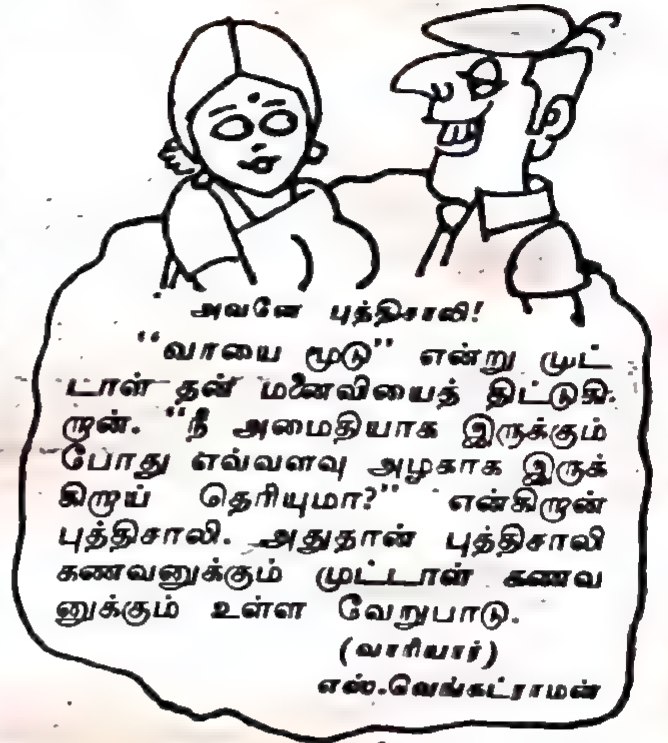 அவனே புத்திசாலி!
“வாயை மூடு” என்று முட்
டாள் தன் மனைவியைத் திட்டுகி-
றான். “நீ அமைதியாக இருக்கும்
போது எவ்வளவு அழகாக இருக்
கிறாய் தெரியுமா?” என்கிறான்
புத்திசாலி. அதுதான் புத்திசாலி
கணவனுக்கும் முட்டாள் கணவ
னுக்கும் உள்ள வேறுபாடு.
(வாரியார்)
எஸ்.வெங்கட்ராமன்